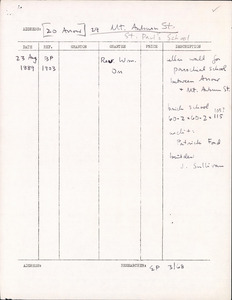 ADDRESS: [20 Arrow] 29 Mt. Auburn St.
St. Paul's School
DATE REF. GRANTOR GRANTEE PRICE DESCRIPTION
23 Aug 1889
BP 1923
Rev. Wm. Orr
wall for
parochial school
between Arrow
+ Mt. Auburn St.
brick school
60 x 60 x 115
archit:
Patrick Ford
builder
J. Sullivan
ADDRESS: RESEARCHER: SP 3/68